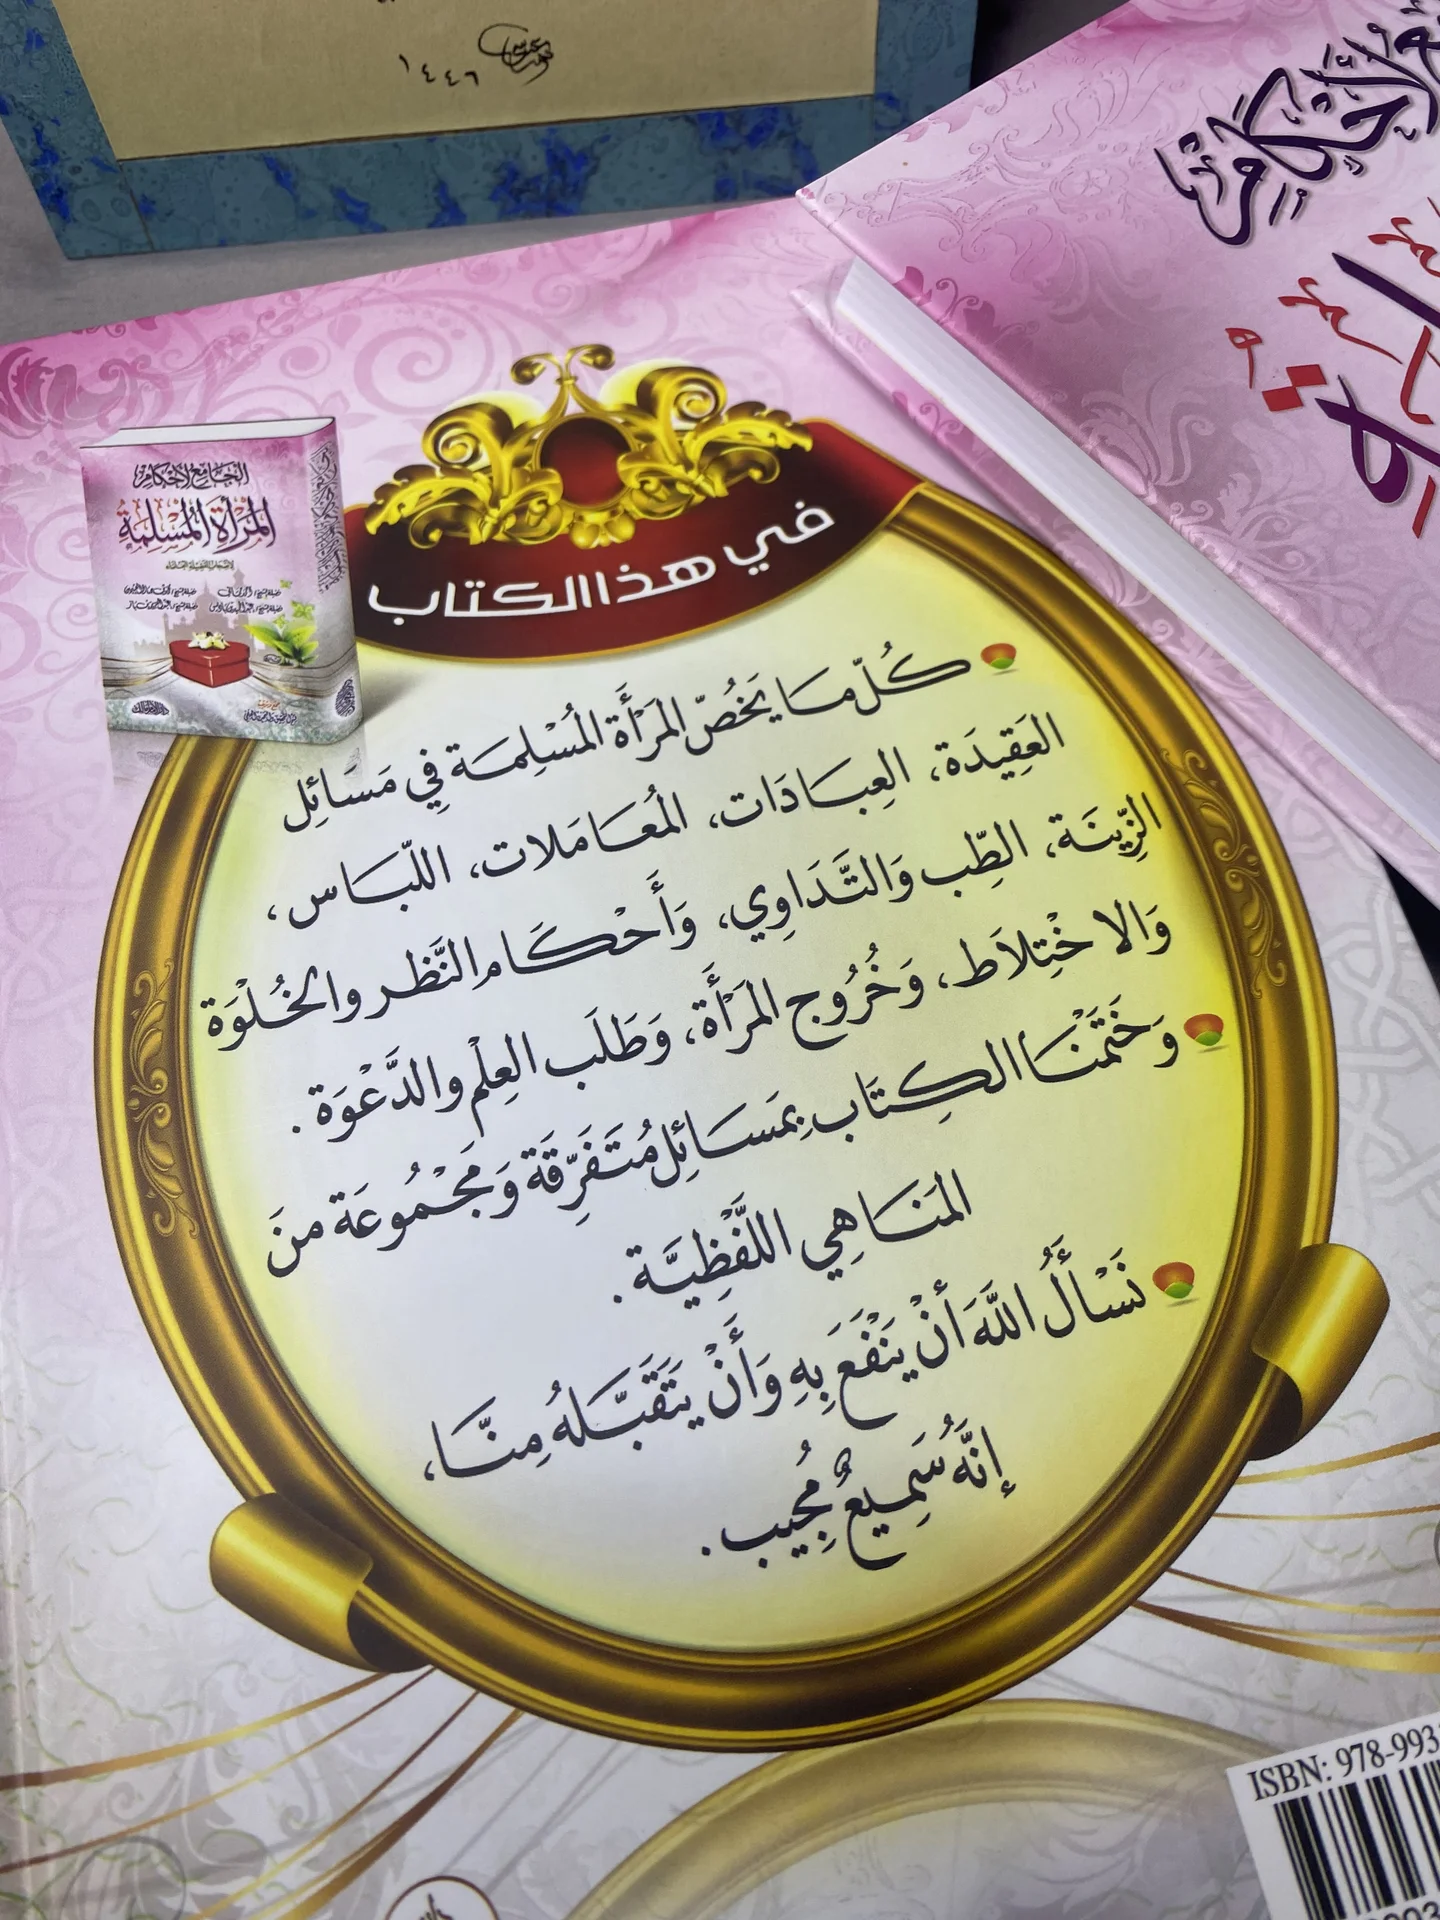 ١٤٤٦
الأحكام
الجامع لأحكام
المرأة المسلمة
في هذا الكتاب
كُلّ مَا يَخُصّ المَرْأَة المُسْلِمَة فِي مَسَائِل
العَقِيدَة، العِبَادَات، المُعَامَلات، اللّبَاس،
الزِّينَة، الطِّب وَالتَّدَاوِي، وَأَحْكَام النَّظَر والخُلْوَة
وَالاخْتِلَاط، وَخُرُوج المَرْأَة، وَطَلَب العِلْم والدَّعْوَة.
وَخَتَمْنَا الكِتَاب بِمَسَائِل مُتَفَرِّقَة وَمَجْمُوعَة منَ
المَنَاهِي اللَّفْظِيَّة.
نَسْأَلُ اللَّهَ أَنْ يَنْفَعَ بِهِ وَأَنْ يَتَقَبَّلهُ مِنَّا،
إنَّهُ سَمِيعٌ مُجِيب.
ISBN: 978-993